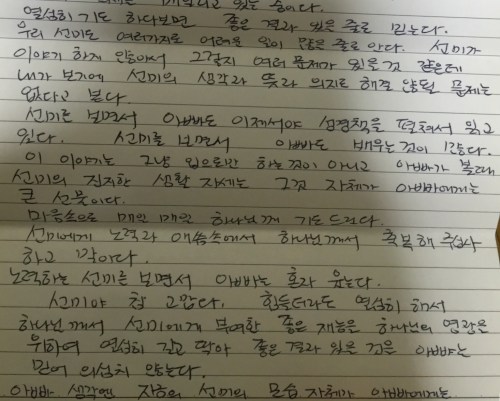 있는 중이다.
열심히 기도 하다보면 좋은 결과 있을 줄로 믿는다.
우리 선미도 여러가지로 어려운 일이 많은 줄로 안다. 선미가
이야기 하게 않아서 그렇지 여러 문제가 있을것 같은데
내가 보기에 선미의 생각과 뜻과 의지로 해결 않될 문제는
없다고 본다.
선미를 보면서 아빠도 이제서야 성경책을 펼쳐서 읽고
있다. 선미를 보면서 아빠도 배우는 것이 많다.
이 이야기는 그냥 입으로만 하는것이 아니고 아빠가 볼때
선미의 진지한 생활 자세는 그것 자체가 아빠에게는
큰 선물이다.
마음속으로 매일 매일 하나님께 기도 드린다.
선미에게 노력과 애씀속에서 하나님께서 축복해 주십사
하고 말이다.
노력하는 선미를 보면서 아빠는 혼자 웃는다.
선미야 참 고맙다. 힘들더라도 열심히 해서
하나님께서 선미에게 부여한 좋은 재능을 하나님의 영광을
위하여 열심히 갈고 닦아 좋은 결과 있을 것을 아빠는
믿어 의심치 않는다.
아빠 생각엔 지금의 선미의 모습 자체가 아빠에게는